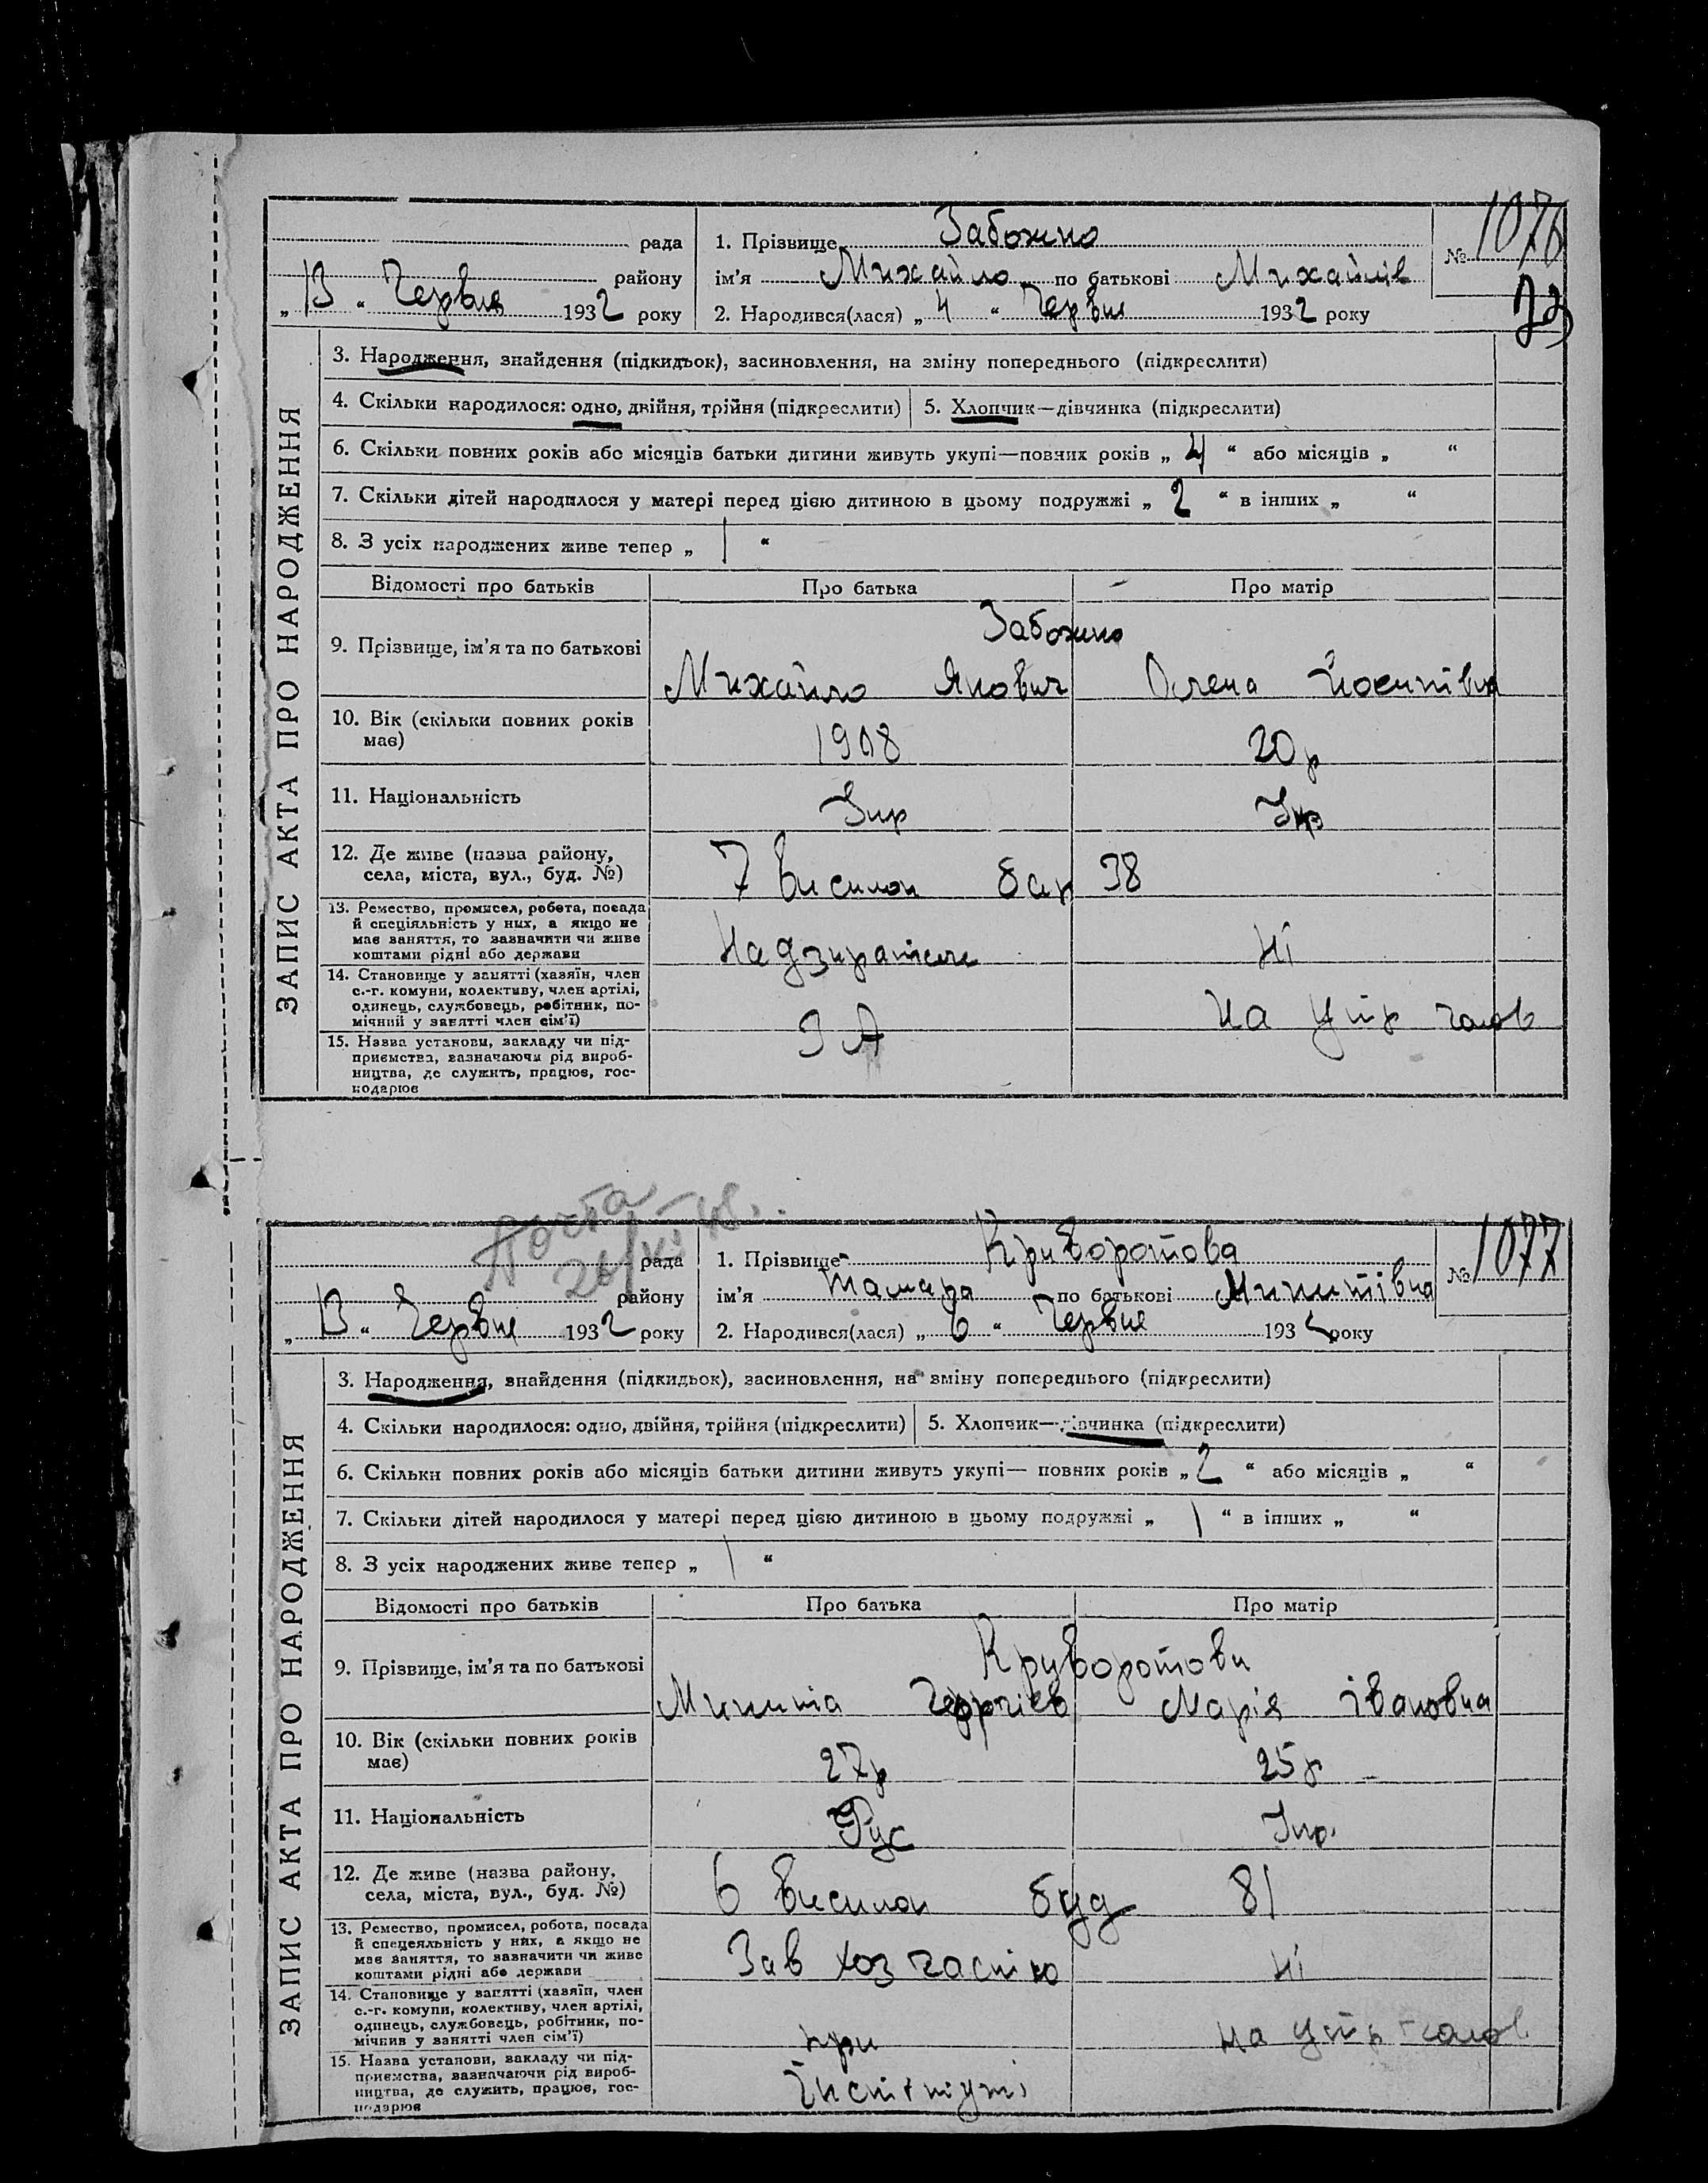 1076
рада 1. Прізвище Забожко №
району ім'я Михайло по батькові Михайлів
„ 13 “ Червня 1932 року 2. Народився(лася) „ 4 “ Червня 1932 року
ЗАПИС АКТА ПРО НАРОДЖЕННЯ
3. Народження, знайдення (підкидьок), засиновлення, на зміну попереднього (підкреслити)
4. Скільки народилося: одно, двійня, трійня (підкреслити) 5. Хлопчик—дівчинка (підкреслити)
6. Скільки повних років або місяців батьки дитини живуть укупі—повних років „ 4 “ або місяців „ “
7. Скільки дітей народилося у матері перед цією дитиною в цьому подружжі „ 2 “ в інших „ “
8. З усіх народжених живе тепер „ 1 “
Відомості про батьків Про батька Про матір
Забожко
9. Прізвище, ім'я та по батькові
Михайло Янович Олена Йосипівна
10. Вік (скільки повних років
має) 1908 20р
11. Національність Укр Укр
12. Де живе (назва району,
села, міста, вул., буд. №) 7 висилок бар 38
13. Ремество, промисел, робота, посада
й спеціяльність у них, а якщо не
має заняття, то зазначити чи живе
коштами рідні або держави
Надзиратель Ні
14. Становище у занятті (хазяїн, член
с.-г. комуни, колективу, член артілі,
одинець, службовець, робітник, по-
мічний у занятті член сім'ї)
на утр чолов
15. Назва установи, закладу чи під-
приємства, зазначаючи рід вироб-
ництва, де служить, працює, гос-
подарює
Почта
26/VI-48.
1077
рада 1. Прізвище Криворотова №
району ім'я Тамара по батькові Микитівна
„ 13 “ Червня 1932 року 2. Народився(лася) „ 6 “ Червня 1932 року
ЗАПИС АКТА ПРО НАРОДЖЕННЯ
3. Народження, знайдення (підкидьок), засиновлення, на зміну попереднього (підкреслити)
4. Скільки народилося: одно, двійня, трійня (підкреслити) 5. Хлопчик—дівчинка (підкреслити)
6. Скільки повних років або місяців батьки дитини живуть укупі— повних років „ 2 “ або місяців „ “
7. Скільки дітей народилося у матері перед цією дитиною в цьому подружжі „ 1 “ в інших „ “
8. З усіх народжених живе тепер „ 1 “
Відомості про батьків Про батька Про матір
Криворотови
9. Прізвище, ім'я та по батькові
Микита Георгієв Марія Івановна
10. Вік (скільки повних років
має) 27р 25р
11. Національність Рус Укр.
12. Де живе (назва району,
села, міста, вул., буд. №) 6 висилок буд 81
13. Ремество, промисел, робота, посада
й спецеяльність у них, а якщо не
має заняття, то зазначити чи живе
коштами рідні або держави
Зав хоз частю Ні
14. Становище у занятті (хазяїн, член
с.-г. комуни, колективу, член артілі,
одинець, службовець, робітник, по-
мічнив у занятті член сім'ї)
при на утр чолов
15. Назва установи, закладу чи під-
приємства, зазначаючи рід вироб-
ництва, де служить, працює, гос-
подарює
Інституті